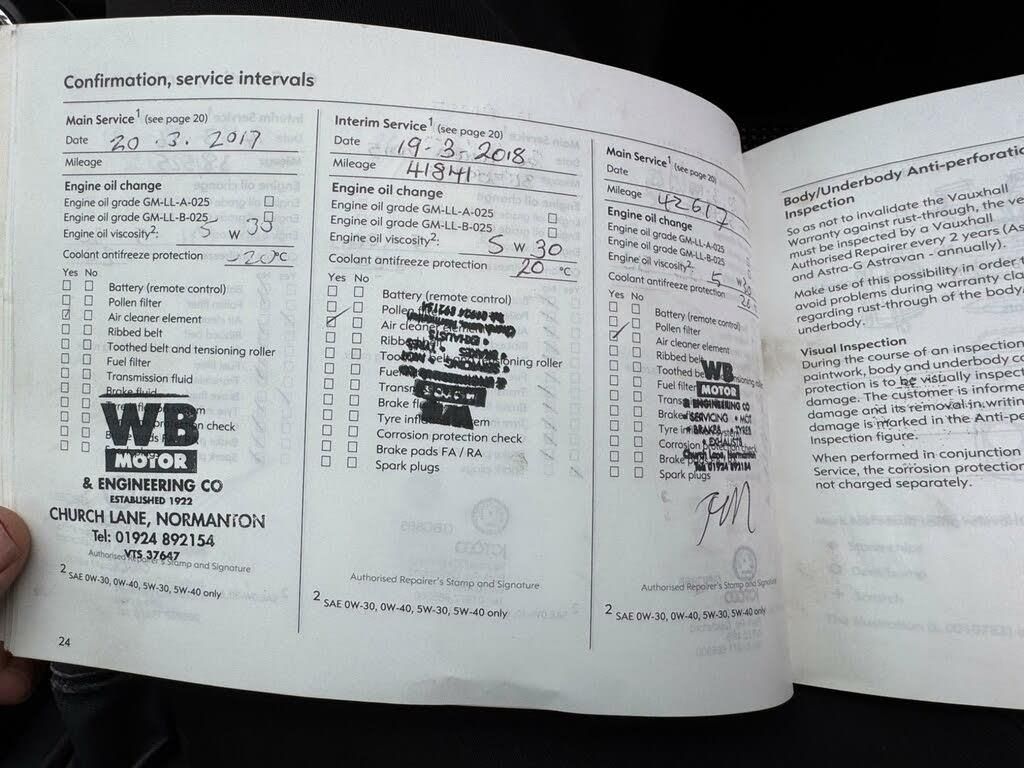 Confirmation, service intervals
Main Service1 (see page 20)
Date 20.3.2017
Mileage
Engine oil change
Engine oil grade GM-LL-A-025
Engine oil grade GM-LL-B-025
Engine oil viscosity2: 5 W 30
Coolant antifreeze protection -20°C
Yes No
Battery (remote control)
Pollen filter
Air cleaner element
Ribbed belt
Toothed belt and tensioning roller
Fuel filter
Transmission fluid
Brake fluid
WB
MOTOR
& ENGINEERING CO
ESTABLISHED 1922
CHURCH LANE, NORMANTON
Tel: 01924 892154
VTS 37647
Authorised Repairer's Stamp and Signature
2 SAE 0W-30, 0W-40, 5W-30, 5W-40 only
24
Interim Service1 (see page 20)
Date 19-3-2018
Mileage 41841
Engine oil change
Engine oil grade GM-LL-A-025
Engine oil grade GM-LL-B-025
Engine oil viscosity2: 5 W 30
Coolant antifreeze protection 20 °C
Yes No
Battery (remote control)
Air cleaner element
Toothed belt and tensioning roller
Brake
Corrosion protection check
Brake pads FA / RA
Spark plugs
Authorised Repairer's Stamp and Signature
2 SAE 0W-30, 0W-40, 5W-30, 5W-40 only
Main Service1 (see page 20)
Date
Mileage 42617
Engine oil change
Engine oil grade GM-LL-A-025
Engine oil grade GM-LL-B-025
Engine oil viscosity2: 5 W30
Coolant antifreeze protection
Yes No
Battery (remote control)
Pollen filter
Air cleaner element
Ribbed belt
Toothed
Fuel filter
WB
MOTOR
& ENGINEERING CO
• SERVICING • MOT
• BRAKES • TYRES
• EXHAUSTS
Church Lane, Normanton
Tel: 01924 892154
Spark plugs
Authorised Repairer's Stamp and
2 SAE 0W-30, 0W-40, 5W-30, 5W-40 only
Body/Underbody Anti-perforatio
Inspection
So as not to invalidate the Vauxhall
Warranty against rust-through, the ve
must be inspected by a Vauxhall
Authorised Repairer every 2 years (As
and Astra-G Astravan - annually).
Make use of this possibility in order t
avoid problems during warranty cla
regarding rust-through of the body,
underbody.
Visual Inspection
During the course of an inspection
paintwork, body and underbody co
protection is to be visually inspect
damage. The customer is informe
damage and its removal in writing
damage is marked in the Anti-pe
Inspection figure.
When performed in conjunction
Service, the corrosion protection
not charged separately.